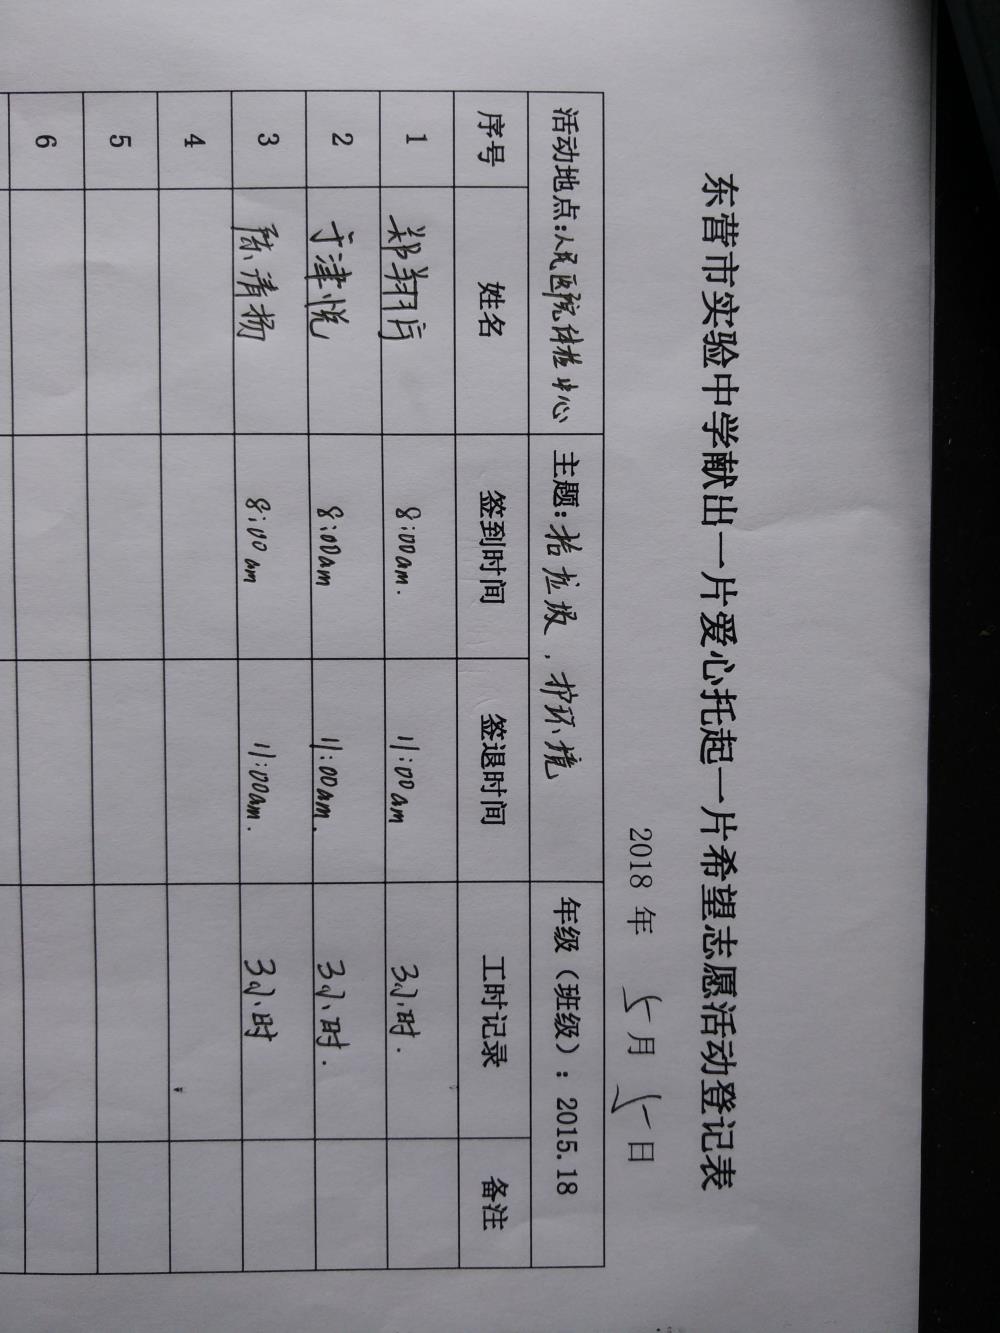 东营市实验中学献出一片爱心托起一片希望志愿活动登记表
2018 年 5 月 5 日
活动地点：人民医院体检中心 主题：拾垃圾，护环境 年级（班级）：2015.18
序号 姓名 签到时间 签退时间 工时记录 备注
1 郑翔宇 8:00am. 11:00am 3小时.
2 于津悦 8:00am 11:00am. 3小时.
3 陈清扬 8:00am 11:00am. 3小时
4
5
6